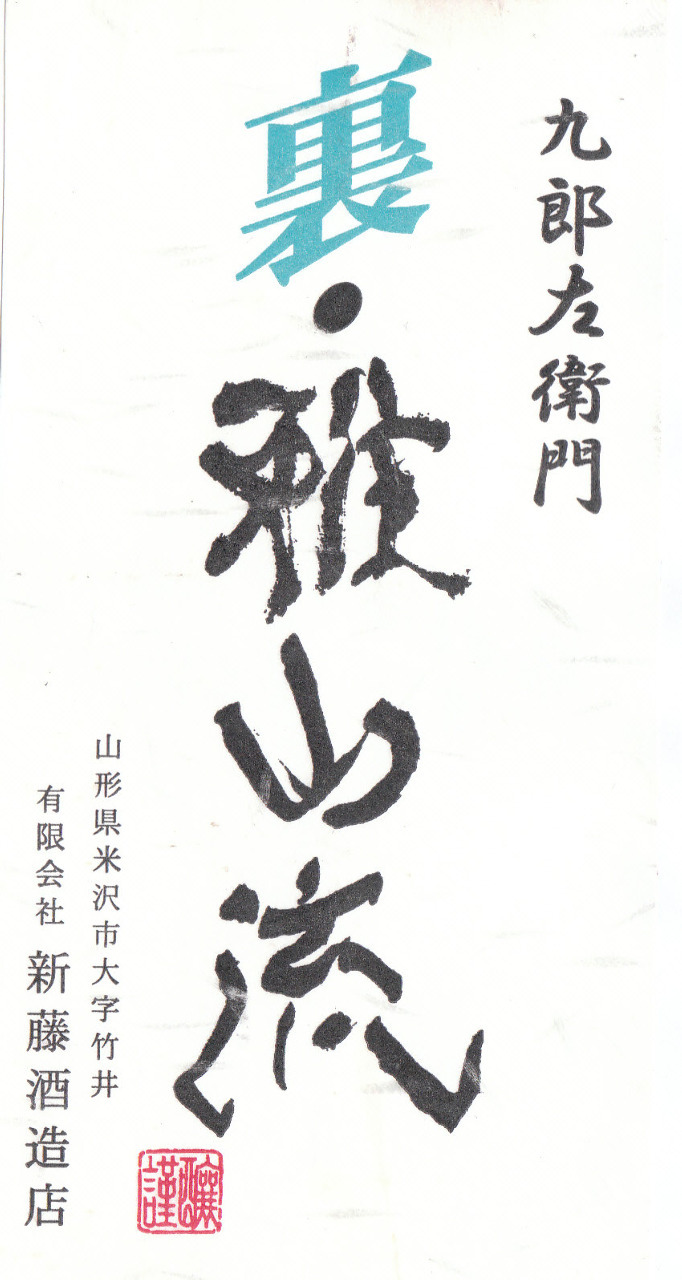 九郎左衛門
裏・雅山流
山形県米沢市大字竹井
有限会社 新藤酒造店
謹醸